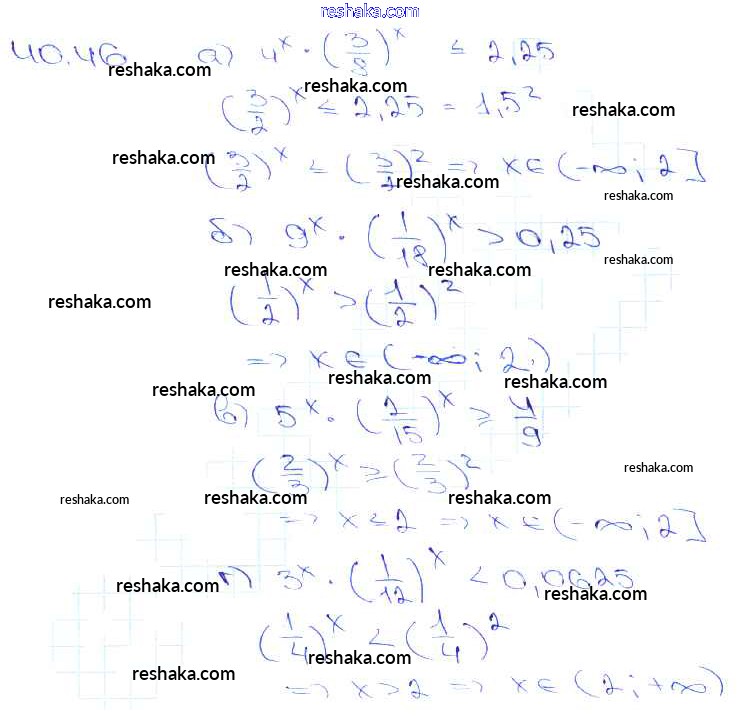 reshaka.com
40.46 а) 4^x · (3/8)^x ≤ 2,25
reshaka.com reshaka.com
(3/2)^x ≤ 2,25 = 1,5^2
reshaka.com
(3/2)^x ≤ (3/2)^2 => x ∈ (-∞; 2]
reshaka.com reshaka.com reshaka.com
б) 9^x · (1/18)^x > 0,25
reshaka.com reshaka.com reshaka.com
(1/2)^x > (1/2)^2
reshaka.com
=> x ∈ (-∞; 2)
reshaka.com reshaka.com reshaka.com
в) 5^x · (2/15)^x ≥ 4/9
(2/3)^x ≥ (2/3)^2
reshaka.com
reshaka.com reshaka.com reshaka.com
=> x ≤ 2 => x ∈ (-∞; 2]
г) 3^x · (1/12)^x < 0,0625
reshaka.com reshaka.com
(1/4)^x < (1/4)^2
reshaka.com reshaka.com
=> x > 2 => x ∈ (2; +∞)